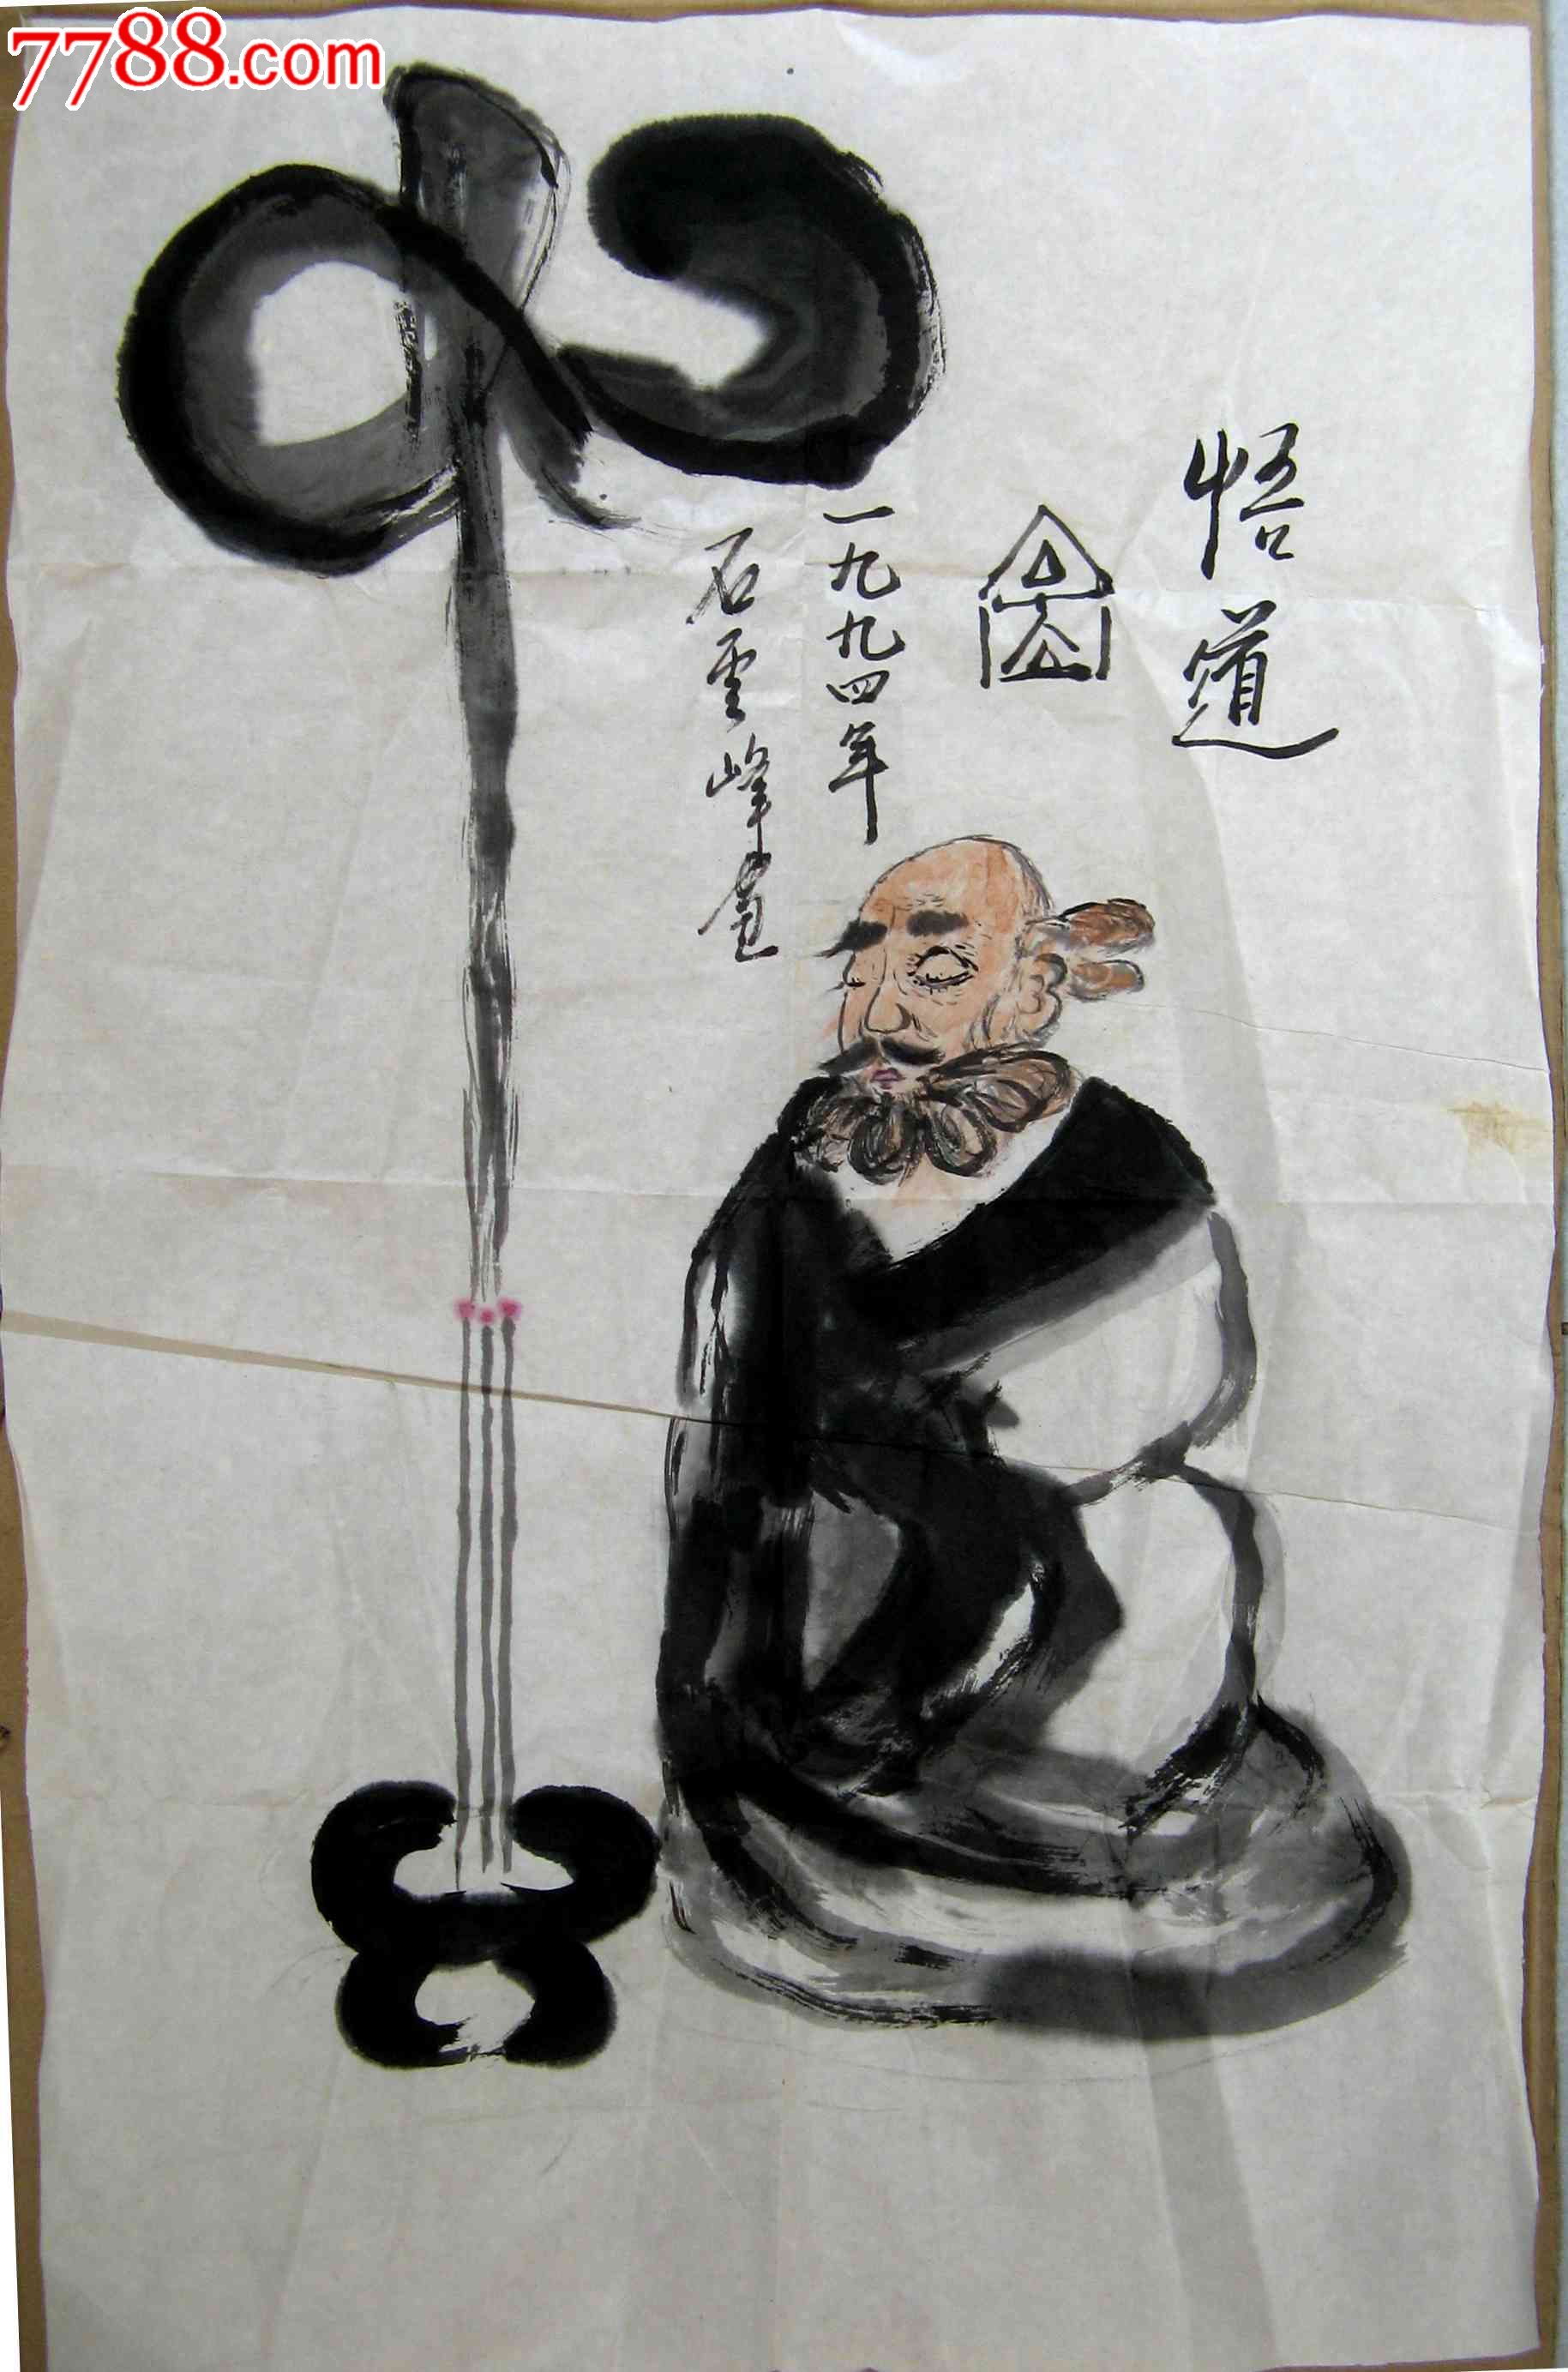 7788.com
悟道
一九九四年
石雲峰畫